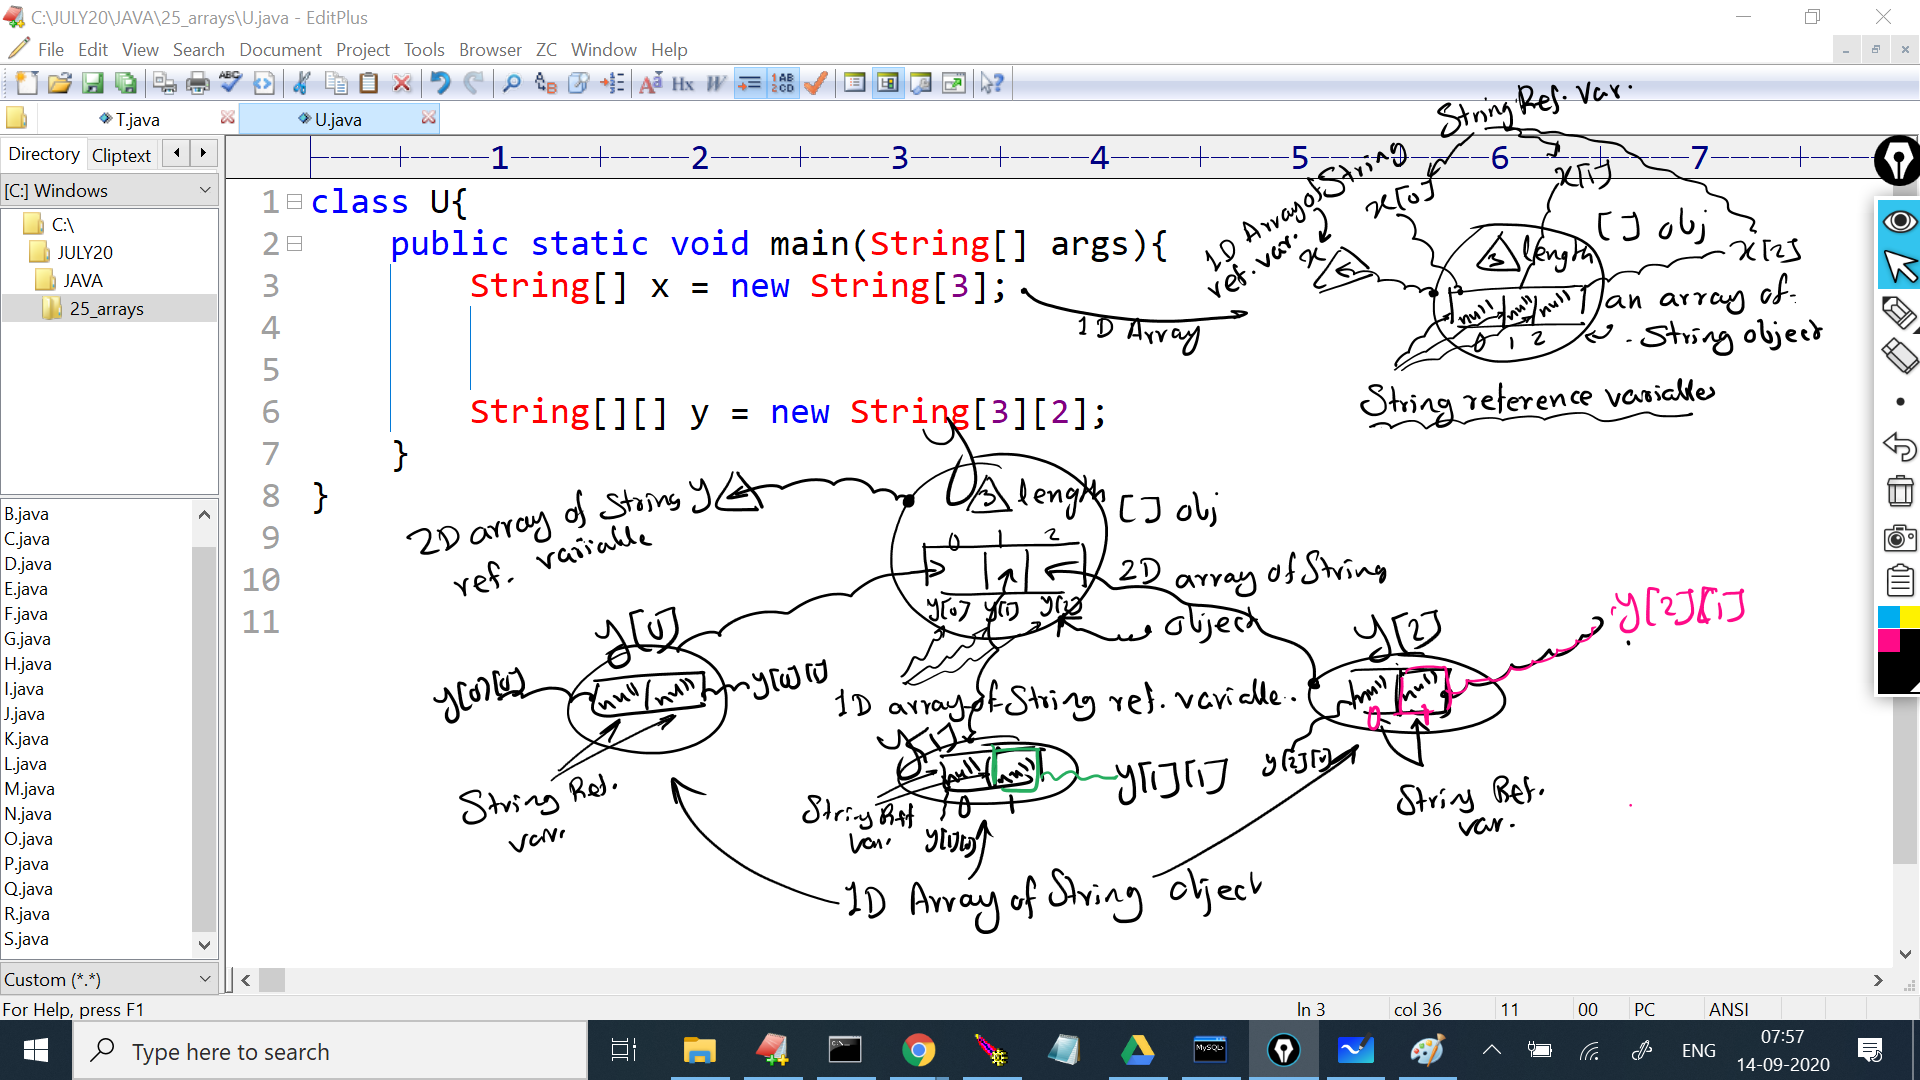 C:\JULY20\JAVA\25_arrays\U.java - EditPlus
File Edit View Search Document Project Tools Browser ZC Window Help
T.java
U.java
Directory Cliptext
[C:] Windows
C:\
JULY20
JAVA
25_arrays
B.java
C.java
D.java
E.java
F.java
G.java
H.java
I.java
J.java
K.java
L.java
M.java
N.java
O.java
P.java
Q.java
R.java
S.java
Custom (*.*)
1 2 3 4 5 6 7
1 class U{
2 public static void main(String[] args){
3 String[] x = new String[3];
4
5
6 String[][] y = new String[3][2];
7 }
8 }
9
10
11
1D Array
String Ref. Var.
1D Array of String
ref. var.
x
x[0]
x[1]
x[2]
[] obj
3 length
null null null
0 1 2
an array of
String object
String reference variables
2D array of String y
ref. variable
y
3 length
[] obj
0 1 2
y[0] y[1] y[2]
2D array of String
object
1D array of String ref. variable..
y[0]
y[0][0]
null null
y[0][1]
String Ref.
var.
y[1]
null null
0 1
y[1][0]
y[1][1]
String Ref
var.
y[2]
null null
0 1
y[2][0]
y[2][1]
String Ref.
var.
1D Array of String object
For Help, press F1
ln 3 col 36 11 00 PC ANSI
Type here to search
MySQL
ENG
07:57
14-09-2020